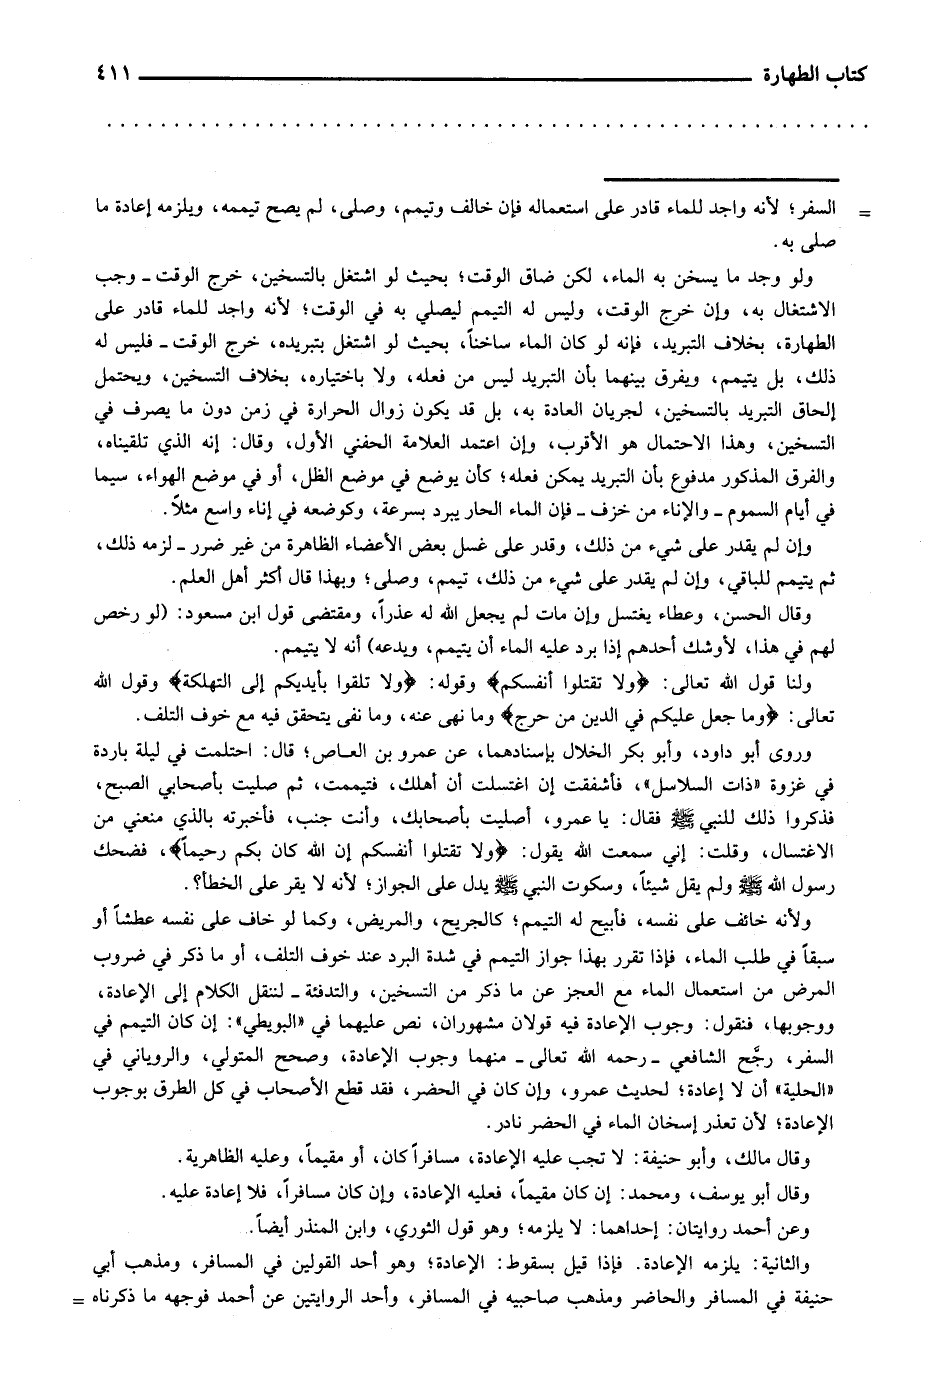 كتاب الطهارة ٤١١
. . . . . . . . . . . . . . . . . . . . . . . . . . . . . . . . . . . . . . . . . . . . . . . . . . . . . . . . .
= السفر؛ لأنه واجد للماء قادر على استعماله فإن خالف وتيمم، وصلى، لم يصح تيممه، ويلزمه إعادة ما
صلى به.
ولو وجد ما يسخن به الماء، لكن ضاق الوقت؛ بحيث لو اشتغل بالتسخين، خرج الوقت ـ وجب
الاشتغال به، وإن خرج الوقت، وليس له التيمم ليصلي به في الوقت؛ لأنه واجد للماء قادر على
الطهارة، بخلاف التبريد، فإنه لو كان الماء ساخناً، بحيث لو اشتغل بتبريده، خرج الوقت ـ فليس له
ذلك، بل يتيمم، ويفرق بينهما بأن التبريد ليس من فعله، ولا باختياره، بخلاف التسخين، ويحتمل
إلحاق التبريد بالتسخين، لجريان العادة به، بل قد يكون زوال الحرارة في زمن دون ما يصرف في
التسخين، وهذا الاحتمال هو الأقرب، وإن اعتمد العلامة الحفني الأول، وقال: إنه الذي تلقيناه،
والفرق المذكور مدفوع بأن التبريد يمكن فعله؛ كأن يوضع في موضع الظل، أو في موضع الهواء، سيما
في أيام السموم ـ والإناء من خزف ـ فإن الماء الحار يبرد بسرعة، وكوضعه في إناء واسع مثلاً.
وإن لم يقدر على شيء من ذلك، وقدر على غسل بعض الأعضاء الظاهرة من غير ضرر ـ لزمه ذلك،
ثم يتيمم للباقي، وإن لم يقدر على شيء من ذلك، تيمم، وصلى؛ وبهذا قال أكثر أهل العلم.
وقال الحسن، وعطاء يغتسل وإن مات لم يجعل الله له عذراً، ومقتضى قول ابن مسعود: (لو رخص
لهم في هذا، لأوشك أحدهم إذا برد عليه الماء أن يتيمم، ويدعه) أنه لا يتيمم.
ولنا قول الله تعالى: ﴿ولا تقتلوا أنفسكم﴾ وقوله: ﴿ولا تلقوا بأيديكم إلى التهلكة﴾ وقول الله
تعالى: ﴿وما جعل عليكم في الدين من حرج﴾ وما نهى عنه، وما نفى يتحقق فيه مع خوف التلف.
وروى أبو داود، وأبو بكر الخلال بإسنادهما، عن عمرو بن العاص؛ قال: احتلمت في ليلة باردة
في غزوة «ذات السلاسل»، فأشفقت إن اغتسلت أن أهلك، فتيممت، ثم صليت بأصحابي الصبح،
فذكروا ذلك للنبي ﷺ فقال: يا عمرو، أصليت بأصحابك، وأنت جنب، فأخبرته بالذي منعني من
الاغتسال، وقلت: إني سمعت الله يقول: ﴿ولا تقتلوا أنفسكم إن الله كان بكم رحيماً﴾، فضحك
رسول الله ﷺ ولم يقل شيئاً، وسكوت النبي ﷺ يدل على الجواز؛ لأنه لا يقر على الخطأ؟.
ولأنه خائف على نفسه، فأبيح له التيمم؛ كالجريح، والمريض، وكما لو خاف على نفسه عطشاً أو
سبقاً في طلب الماء، فإذا تقرر بهذا جواز التيمم في شدة البرد عند خوف التلف، أو ما ذكر في ضروب
المرض من استعمال الماء مع العجز عن ما ذكر من التسخين، والتدفئة ـ لننقل الكلام إلى الإعادة،
ووجوبها، فنقول: وجوب الإعادة فيه قولان مشهوران، نص عليهما في «البويطي»: إن كان التيمم في
السفر، رجَّح الشافعي ـ رحمه الله تعالى ـ منهما وجوب الإعادة، وصحح المتولي، والروياني في
«الحلية» أن لا إعادة؛ لحديث عمرو، وإن كان في الحضر، فقد قطع الأصحاب في كل الطرق بوجوب
الإعادة؛ لأن تعذر إسخان الماء في الحضر نادر.
وقال مالك، وأبو حنيفة: لا تجب عليه الإعادة، مسافراً كان، أو مقيماً، وعليه الظاهرية.
وقال أبو يوسف، ومحمد: إن كان مقيماً، فعليه الإعادة، وإن كان مسافراً، فلا إعادة عليه.
وعن أحمد روايتان: إحداهما: لا يلزمه؛ وهو قول الثوري، وابن المنذر أيضاً.
والثانية: يلزمه الإعادة. فإذا قيل بسقوط: الإعادة؛ وهو أحد القولين في المسافر، ومذهب أبي
حنيفة في المسافر والحاضر ومذهب صاحبيه في المسافر، وأحد الروايتين عن أحمد فوجهه ما ذكرناه =